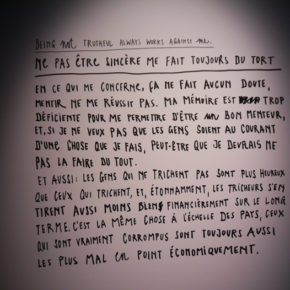 BEING not TRUTHFUL ALWAYS WORKS AGAINST me.
NE PAS ÊTRE SINCÈRE ME FAIT TOUJOURS DU TORT
EN CE QUI ME CONCERNE, ÇA NE FAIT AUCUN DOUTE,
MENTIR NE ME RÉUSSIT PAS. MA MÉMOIRE EST TROP
DÉFICIENTE POUR ME PERMETTRE D'ÊTRE UN BON MENTEUR,
ET, SI JE NE VEUX PAS QUE LES GENS SOIENT AU COURANT
D'UNE CHOSE QUE JE FAIS, PEUT-ÊTRE QUE JE DEVRAIS NE
PAS LA FAIRE DU TOUT.
ET AUSSI: LES GENS QUI NE TRICHENT PAS SONT PLUS HEUREUX
QUE CEUX QUI TRICHENT, ET, ÉTONNAMMENT, LES TRICHEURS S'EN
TIRENT AUSSI MOINS BIEN FINANCIÈREMENT SUR LE LONG
TERME. C'EST LA MÊME CHOSE À L'ÉCHELLE DES PAYS, CEUX
QUI SONT VRAIMENT CORROMPUS SONT TOUJOURS AUSSI
LES PLUS MAL EN POINT ÉCONOMIQUEMENT.